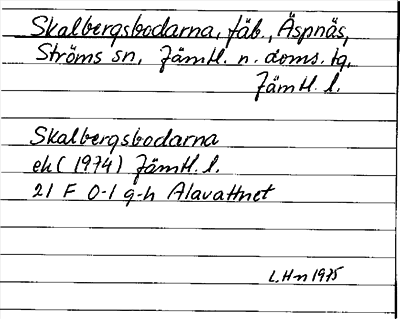 Skalbergsbodarna, fäb., Äspnäs,
Ströms sn, Jämtl. n. doms. tg,
Jämtl. l.
Skalbergsbodarna
ek (1974) Jämtl. l.
21 F 0-1 g-h Alavattnet
L.H-n 1975